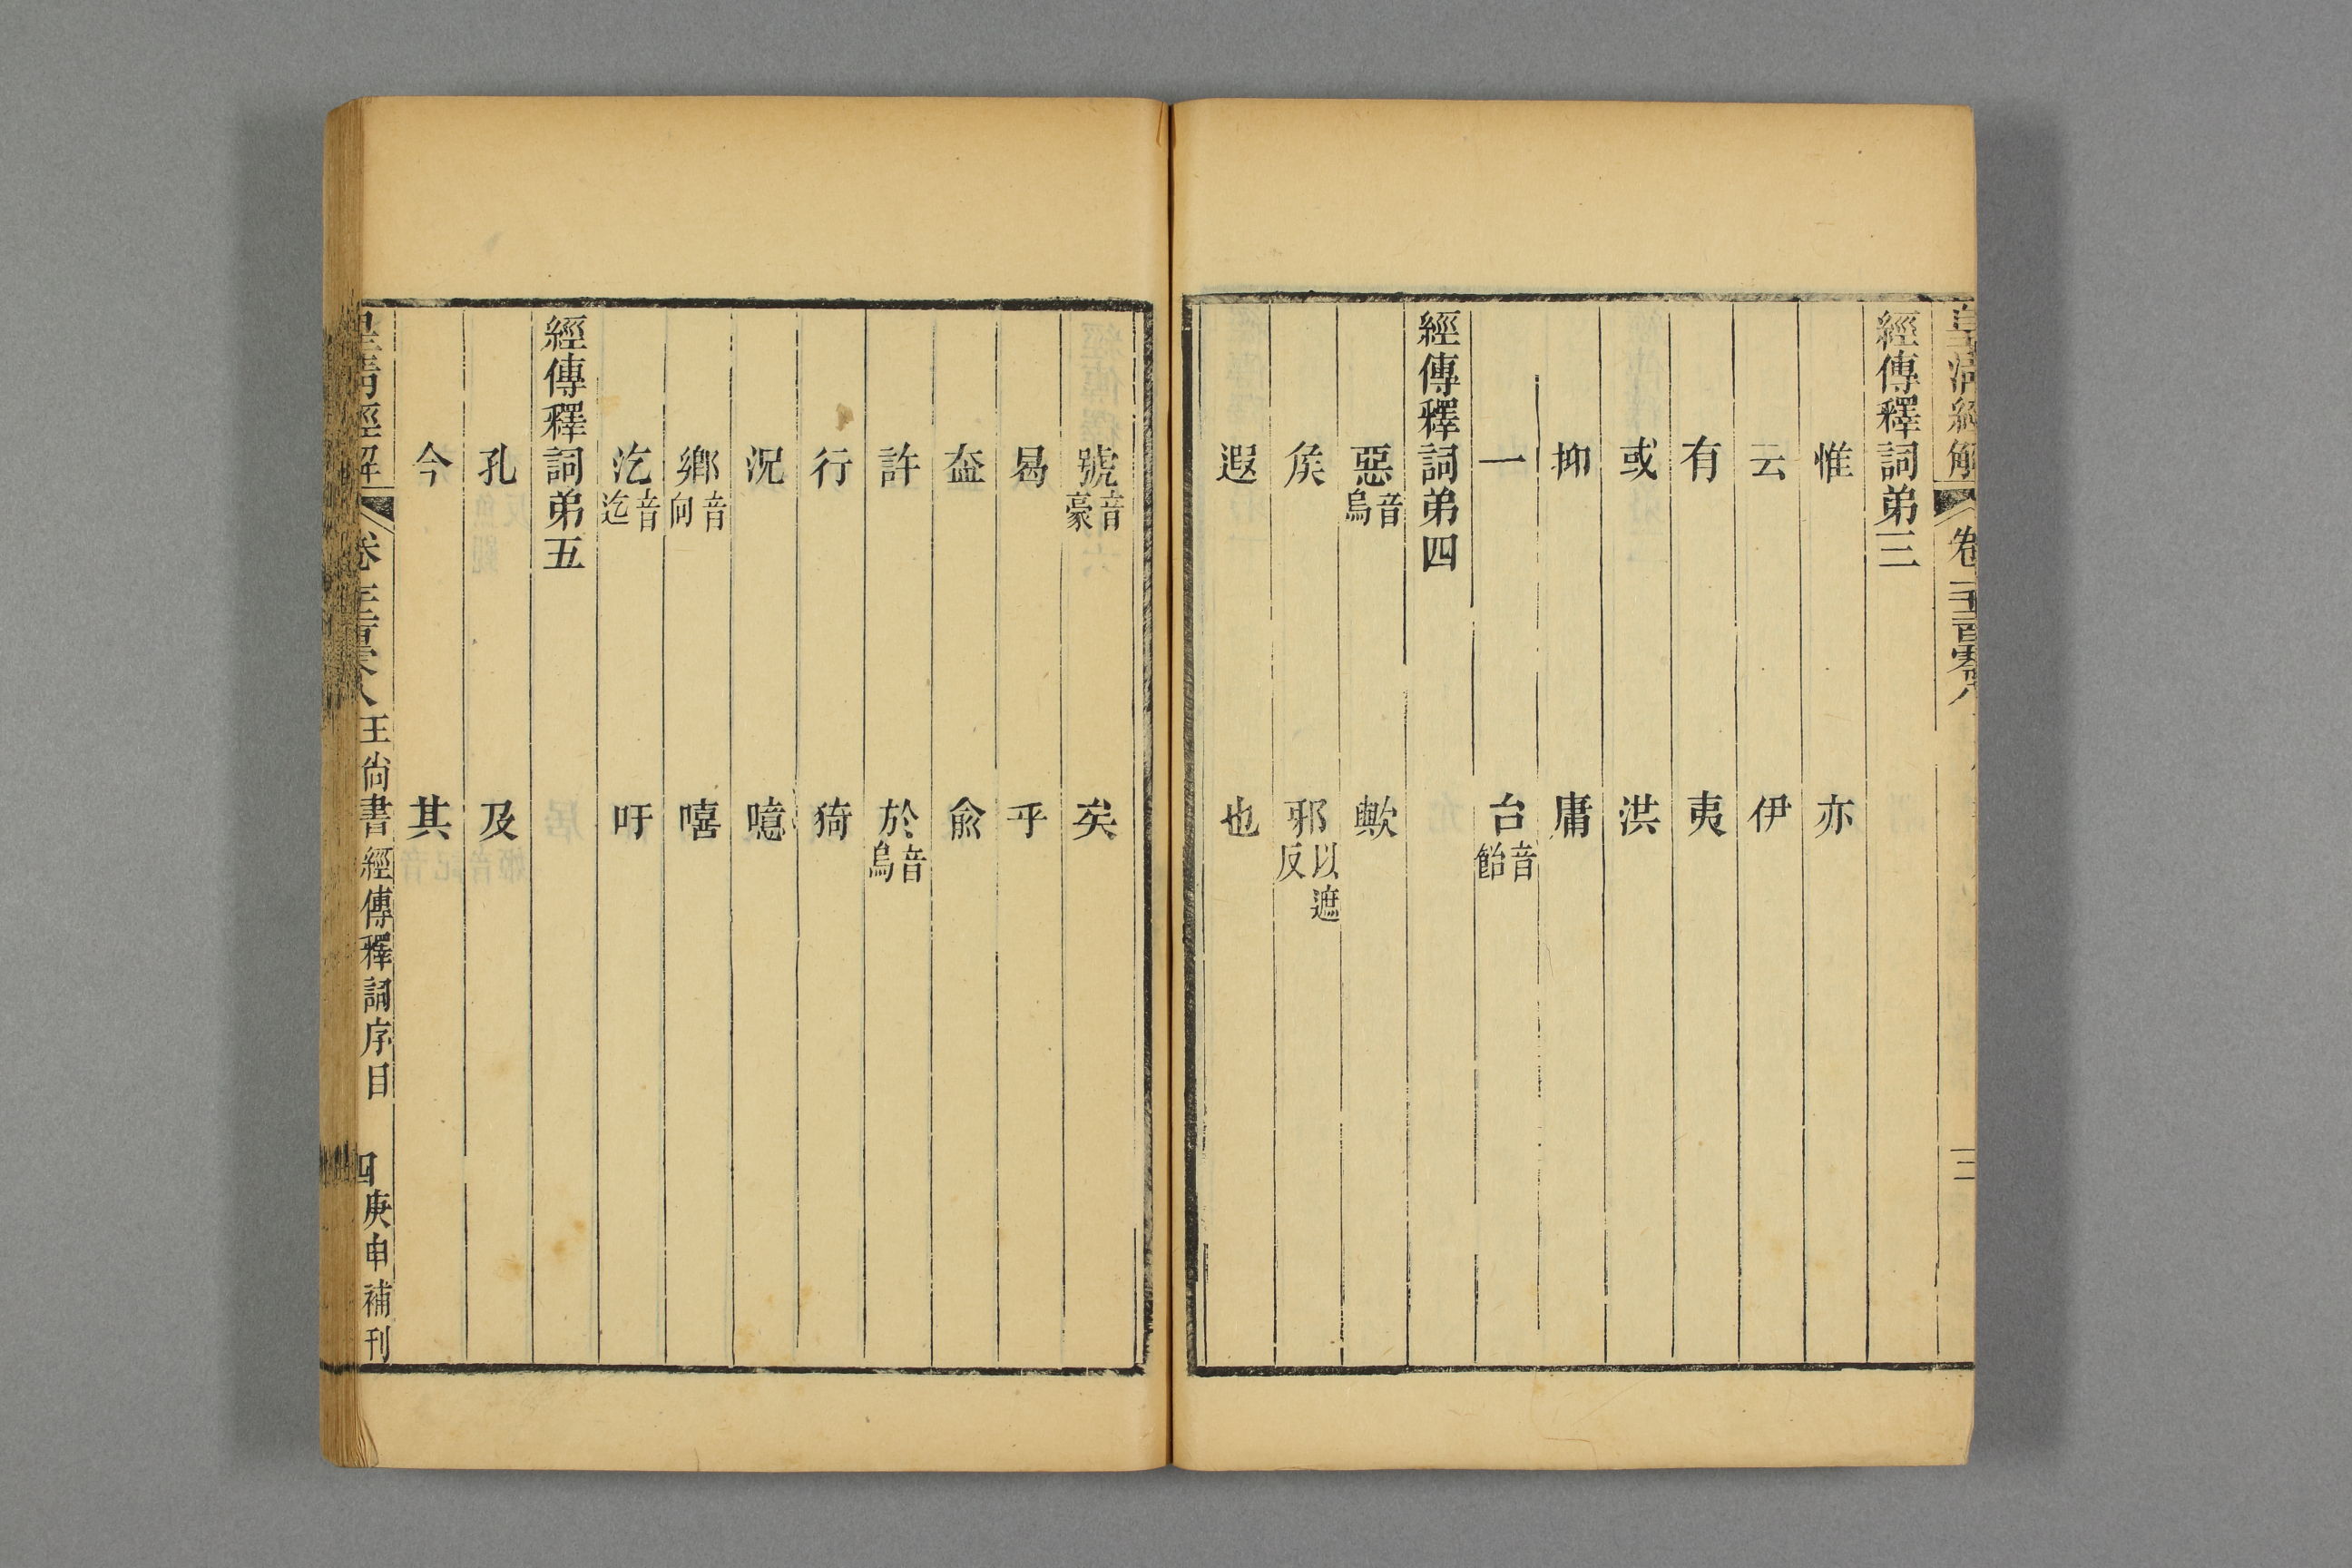 皇清經解 卷一千二百零八 三
經傳釋詞弟三
惟 亦
云 伊
有 夷
或 洪
抑 庸
一 台音飴
經傳釋詞弟四
惡音烏 歟
矦 邪以遮反
遐 也
號音豪 矣
曷 乎
盇 兪
許 於音烏
行 猗
況 噫
鄉音向 嘻
汔音迄 吁
經傳釋詞弟五
孔 及
今 其
皇清經解 卷一千二百零八 王尙書經傳釋詞序目 四 庚申補刊